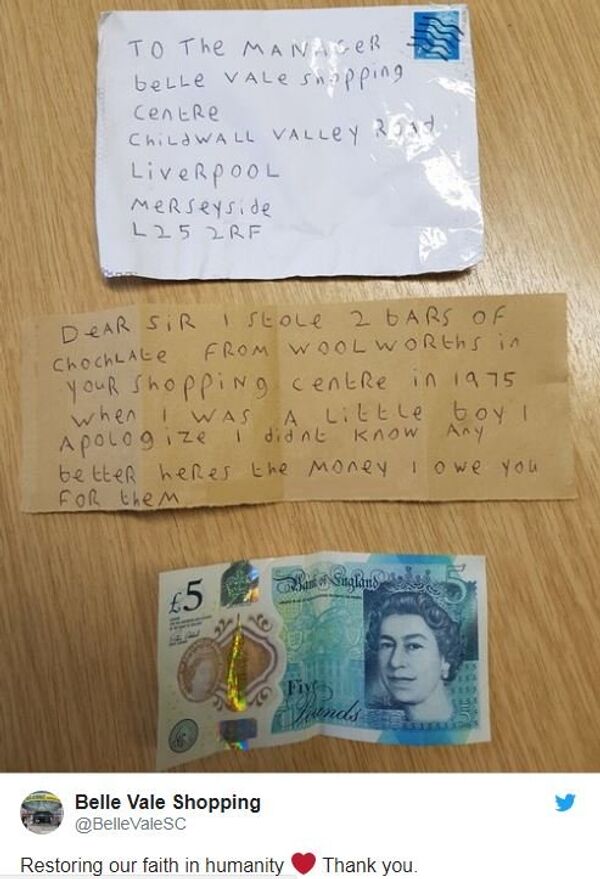 TO The MANAGER
beLLe VALe shopping
CentRe
ChiLdWALL VALLey Road
LiveRpooL
MeRseyside
L25 2RF
DeAR SiR I StoLe 2 bARS OF
ChochLAte FROM WOOLWORths in
youR Shopping centRe in 1975
when I WAS A LittLe boy I
Apologize I didnt KNOW Any
betteR heRes the Money I owe you
FOR theM
£5
Bank of England
5
Five
Pounds
Belle Vale Shopping
@BelleValeSC
Restoring our faith in humanity ❤ Thank you.